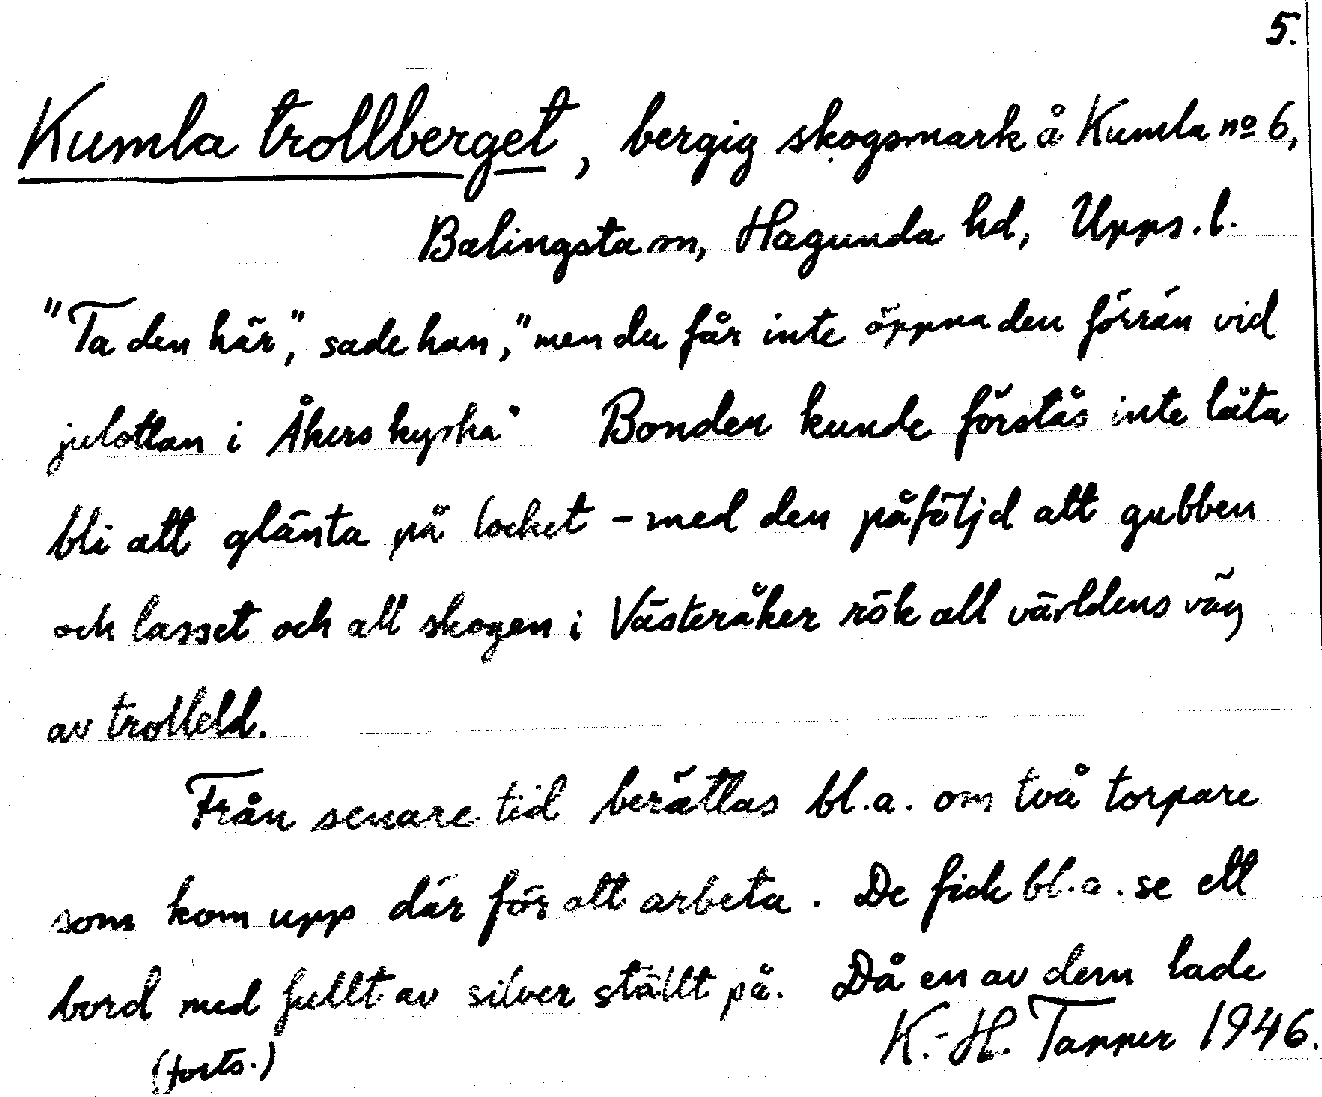 5.
Kumla trollberget, bergig skogsmark å Kumla no 6,
Balingsta sn, Hagunda hd, Upps. l.
"Ta den här", sade han, "men du får inte öppna den förrän vid
julottan i Åkers kyrka" Bonden kunde förstås inte låta
bli att glänta på locket - med den påföljd att gubben
och lasset och all skogen i Västeråker rök all världens väg
av trolleld.
Från senare tid berättas bl.a. om två torpare
som kom upp där för att arbeta. De fick bl.a. se ett
bord med fullt av silver ställt på. Då en av dem lade
(forts.)
K.-H. Tapper 1946.